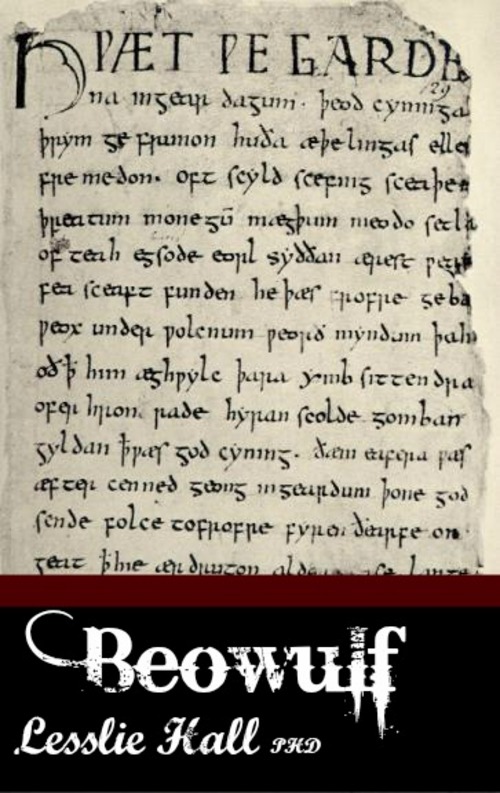 HǷÆT ǷE GARDE
na ingear dagum. þeod cyninga
þrym ge frunon huða æþelingas elle
fremedon. oft scyld scefing sceaþe
þreatum monegū mægþum meodo setla
of teah egsode eorl syððan ærest
fea sceaft funden he þæs frofre geba
ƿeox under ƿolcnum ƿeorð myndum þah
oð ꝥ him æghƿylc þara ymb sittendra
ofer hron rade hyran scolde gomban
gyldan ꝥ ƿæs god cyning. ðæm eafera ƿæs
æfter cenned geong ingeardum þone god
sende folce tofrofre fyren ðearfe on
geat ꝥ hie ær drugon
Beowulf
Lesslie Hall PHD